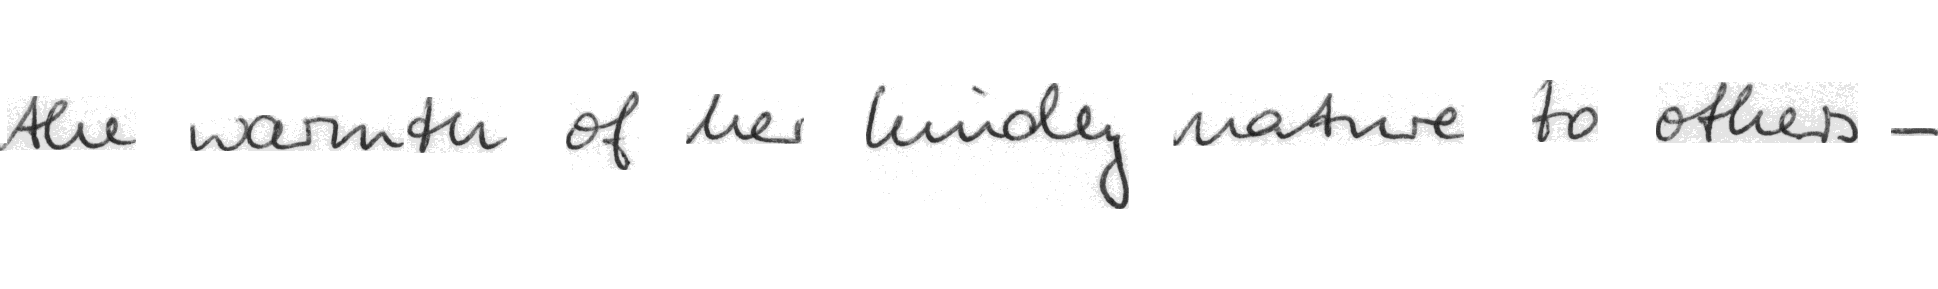 the warmth of her kindly nature to others -